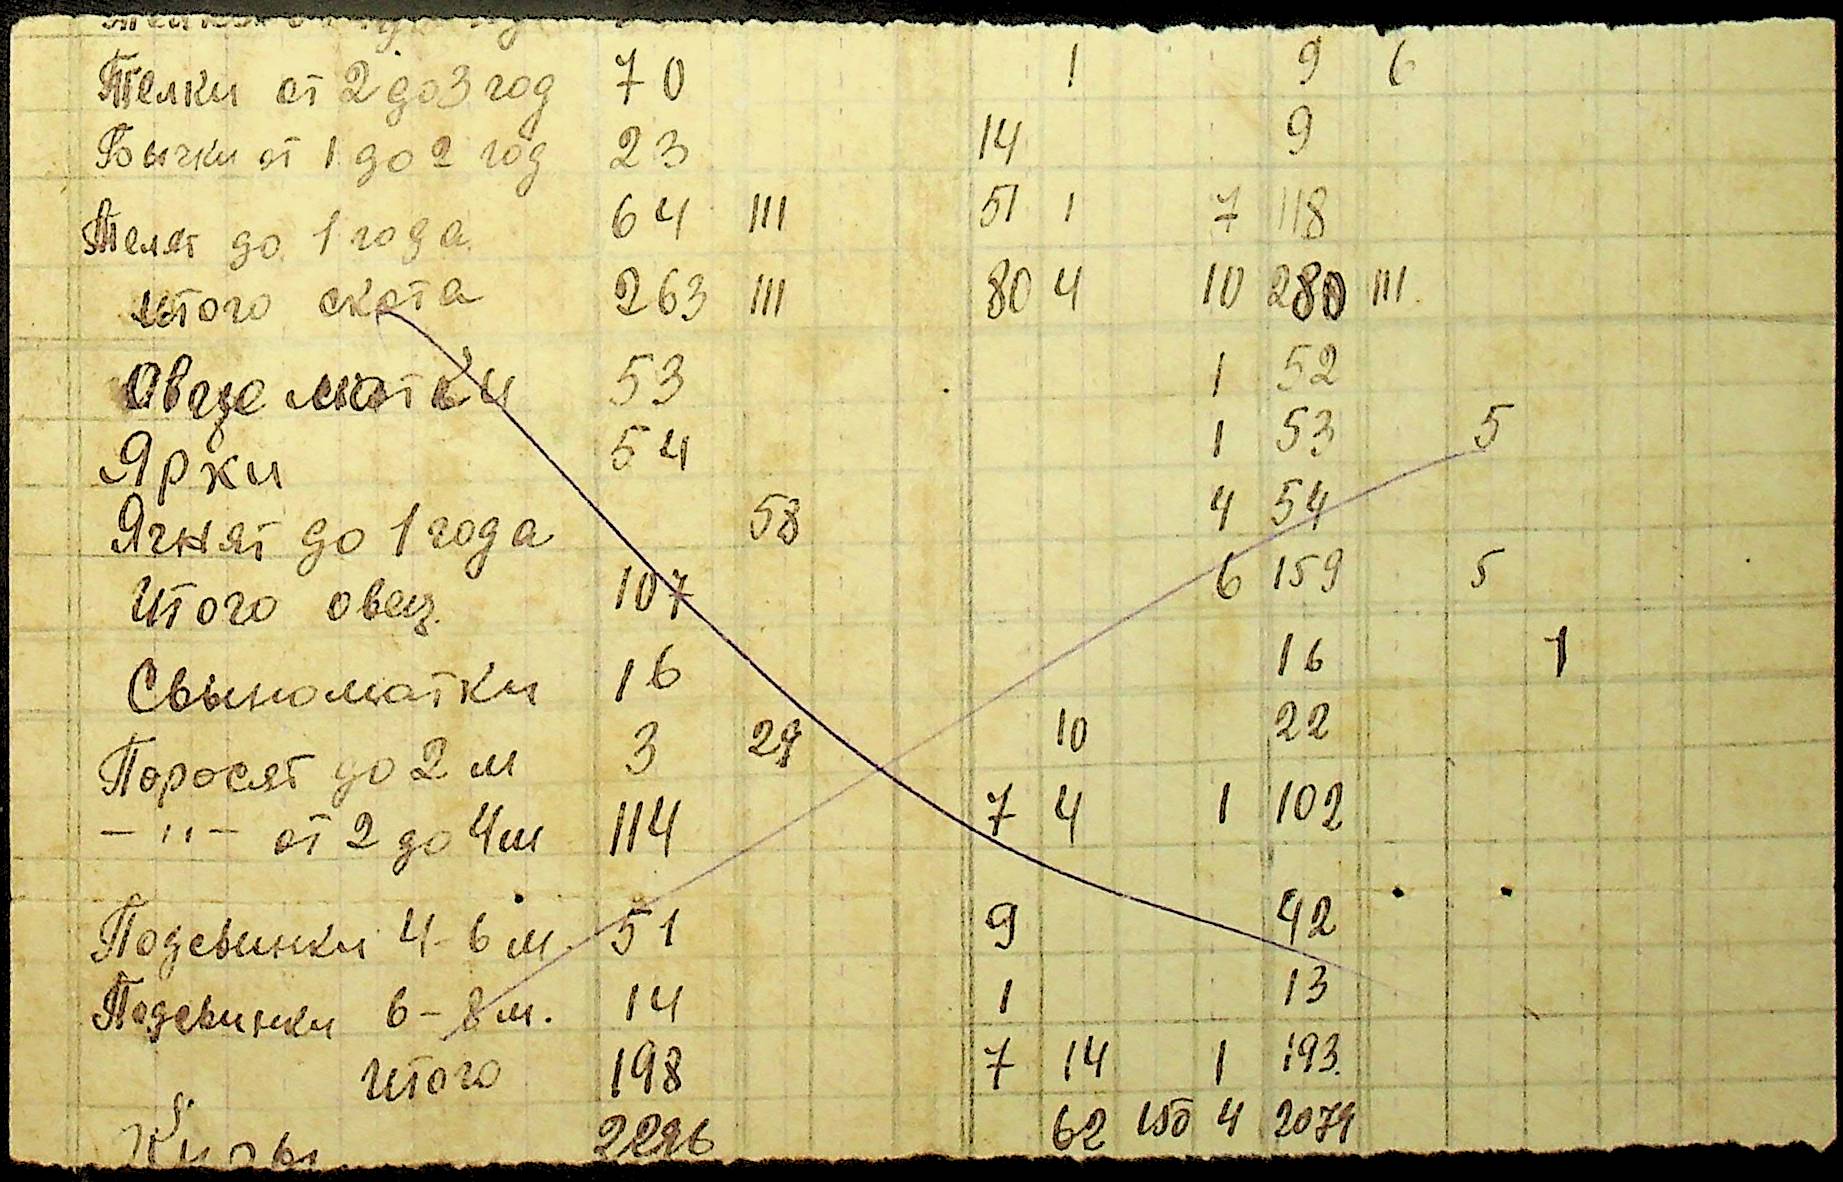 Телки от 2 до 3 год 70 1 9 6
Бычки от 1 до 2 год 23 14 9
Телят до 1 года 64 111 51 1 7 118
итого скота 263 111 80 4 10 280 111
Овце матки 53 1 52
Ярки 54 1 53 5
Ягнят до 1 года 58 4 54
Итого овец 107 6 159 5
Свыноматки 16 16 1
Поросят до 2 м 3 29 10 22
— " — от 2 до 4 м 114 7 4 1 102
Подсвинки 4-6 м 51 9 42
Подсвинки 6-8 м. 14 1 13
Итого 198 7 14 1 193
62 150 4 2079